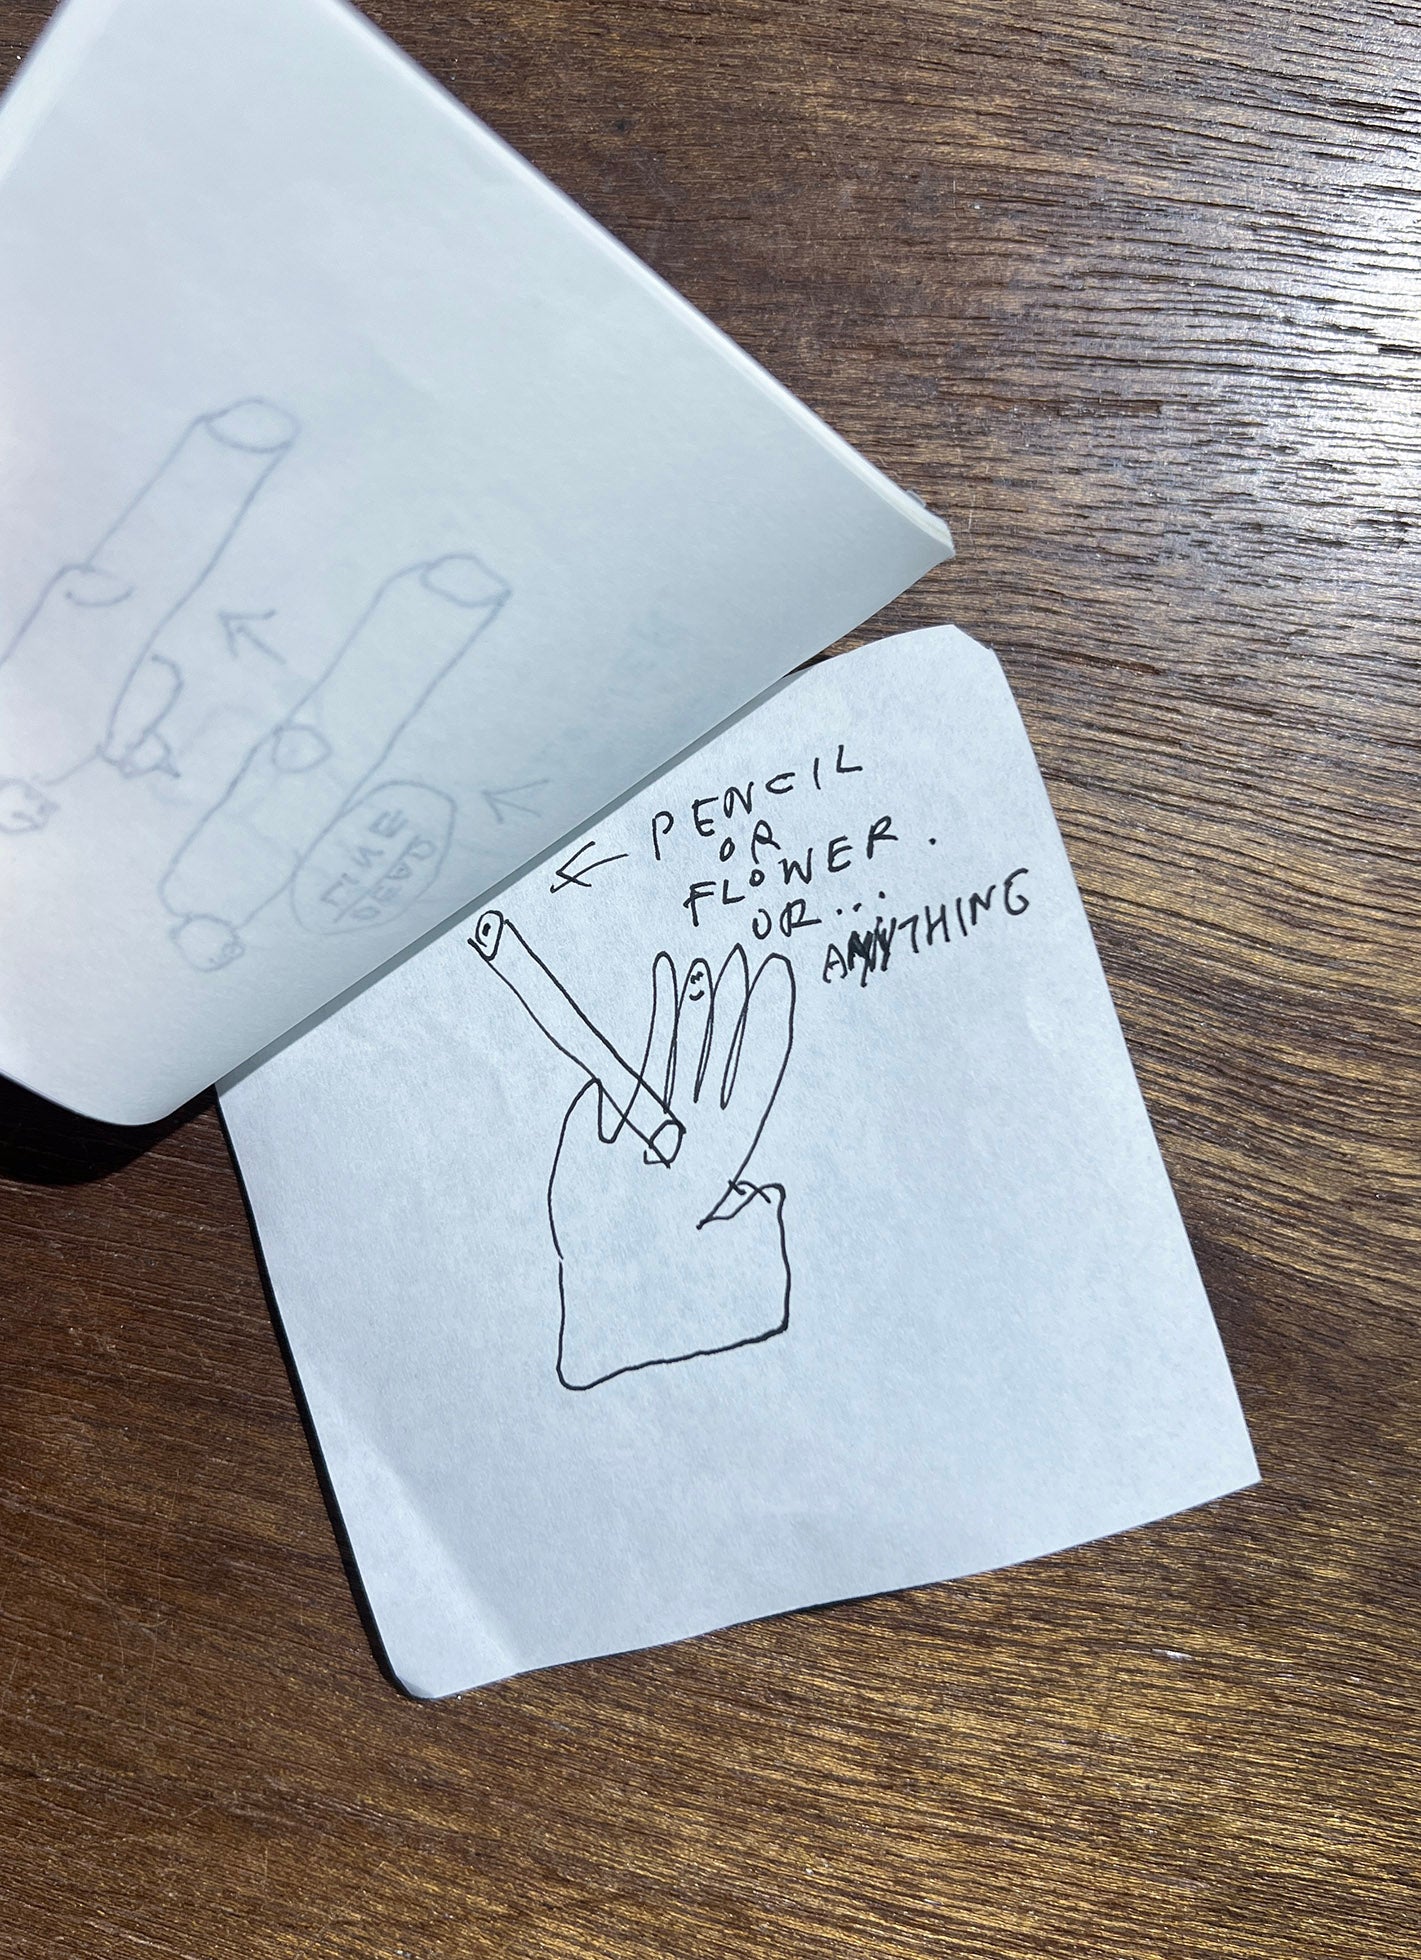 PENCIL
OR
FLOWER.
OR...
ANYTHING